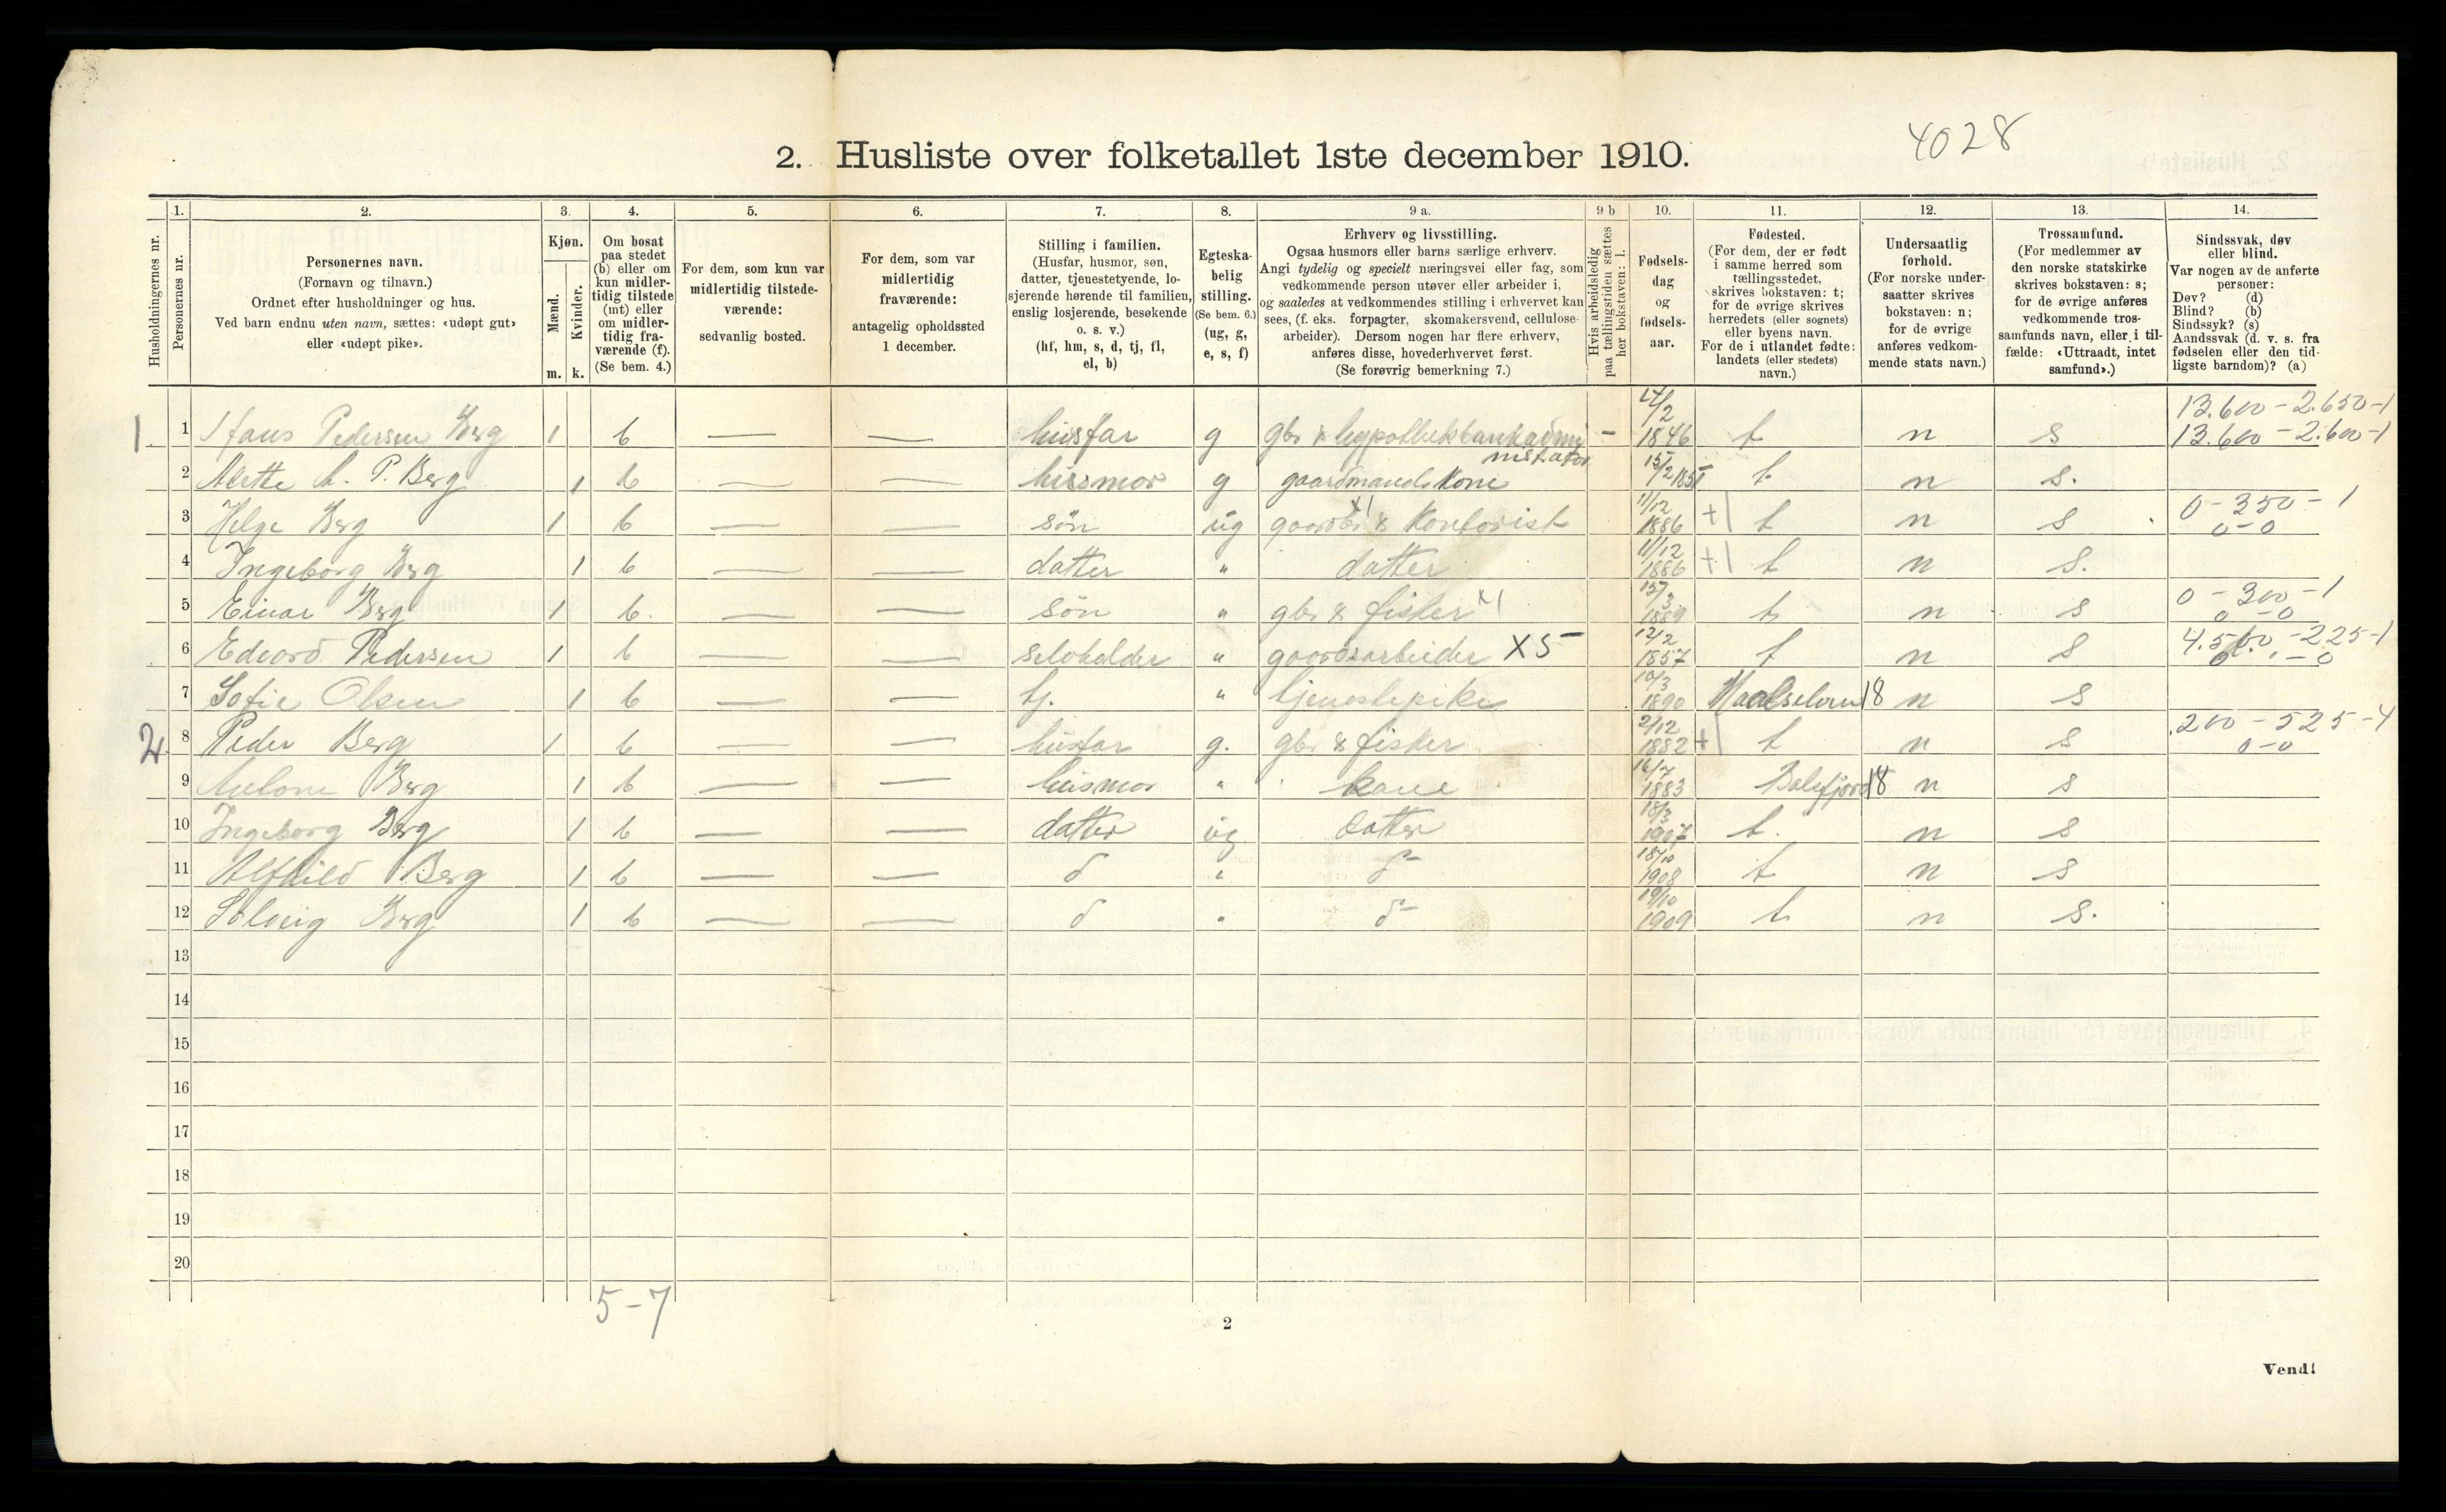 4028
2. Husliste over folketallet 1ste december 1910.
Husholdningernes nr.
1.
Personernes nr.
2.
Personernes navn.
(Fornavn og tilnavn.)
Ordnet efter husholdninger og hus.
Ved barn endnu uten navn, sættes: «udøpt gut»
eller «udøpt pike».
3.
Kjøn.
Mænd.
Kvinder.
m. k.
4.
Om bosat
paa stedet
(b) eller om
kun midler-
tidig tilstede
(mt) eller
om midler-
tidig fra-
værende (f).
(Se bem. 4.)
5.
For dem, som kun var
midlertidig tilstede-
værende:
sedvanlig bosted.
6.
For dem, som var
midlertidig
fraværende:
antagelig opholdssted
1 december.
7.
Stilling i familien.
(Husfar, husmor, søn,
datter, tjenestetyende, lo-
sjerende hørende til familien,
enslig losjerende, besøkende
o. s. v.)
(hf, hm, s, d, tj, fl,
el, b)
8.
Egteska-
belig
stilling.
(Se bem. 6.)
(ug, g,
e, s, f)
9 a.
Erhverv og livsstilling.
Ogsaa husmors eller barns særlige erhverv.
Angi tydelig og specielt næringsvei eller fag, som
vedkommende person utøver eller arbeider i,
og saaledes at vedkommendes stilling i erhvervet kan
sees, (f. eks. forpagter, skomakersvend, cellulose-
arbeider). Dersom nogen har flere erhverv,
anføres disse, hovederhvervet først.
(Se forøvrig bemerkning 7.)
9 b
Hvis arbeidsledig
paa tællingstiden sættes
her bokstaven: l.
10.
Fødsels-
dag
og
fødsels-
aar.
11.
Fødested.
(For dem, der er født
i samme herred som
tællingsstedet,
skrives bokstaven: t;
for de øvrige skrives
herredets (eller sognets)
eller byens navn.
For de i utlandet fødte:
landets (eller stedets)
navn.)
12.
Undersaatlig
forhold.
(For norske under-
saatter skrives
bokstaven: n;
for de øvrige
anføres vedkom-
mende stats navn.)
13.
Trossamfund.
(For medlemmer av
den norske statskirke
skrives bokstaven: s;
for de øvrige anføres
vedkommende tros-
samfunds navn, eller i til-
fælde: «Uttraadt, intet
samfund».)
14.
Sindssvak, døv
eller blind.
Var nogen av de anførte
personer:
Døv? (d)
Blind? (b)
Sindssyk? (s)
Aandssvak (d. v. s. fra
fødselen eller den tid-
ligste barndom)? (a)
1. 1 Hans Pedersen Berg 1 b — — husfar g gbr & hypothekbankadmi nistrator — 1846 t n s 13.600 - 2.650 - 1 13.600 - 2.600 - 1
2 Mette P. Berg 1 b — — husmor g gaardmandskone 15/2 1851 t n s.
3 Helge Berg 1 b — — søn ug gaardbr & kontorist x1 11/12 1886 +1 t n s 0 - 350 - 1 0 - 0
4 Ingeborg Berg 1 b — — datter " datter 11/12 1886 +1 t n s.
5 Einar Berg 1 b. — — søn " gbr & fisker x1 15/3 1889 t n s 0 - 300 - 1 0 - 0
6 Edvard Pedersen 1 b — — selvholder " gaardsarbeider X5 12/2 1857 t n s - 225 - 1 - 0
7 Sofie Olsen 1 b — — tj. " tjenestepike 10/3 1890 Maalselven 18 n s
2. 8 Peder Berg 1 b — — husfar g. gbr & fisker 2/12 1882 +1 t n s 200 - 525 - 4 0 - 0
9 Berg 1 b — — husmor " kone 16/7 1883 Balsfjord 18 n s
10 Ingeborg Berg 1 b — — datter ug datter 18/3 1907 t. n s
11 Alfhild Berg 1 b — — d " d 18/10 1908 t n s
12 Solveig Berg 1 b — — d " d 19/10 1909 t n s.
13
14
15
16
17
18
19
20
5-7
2
Vend!